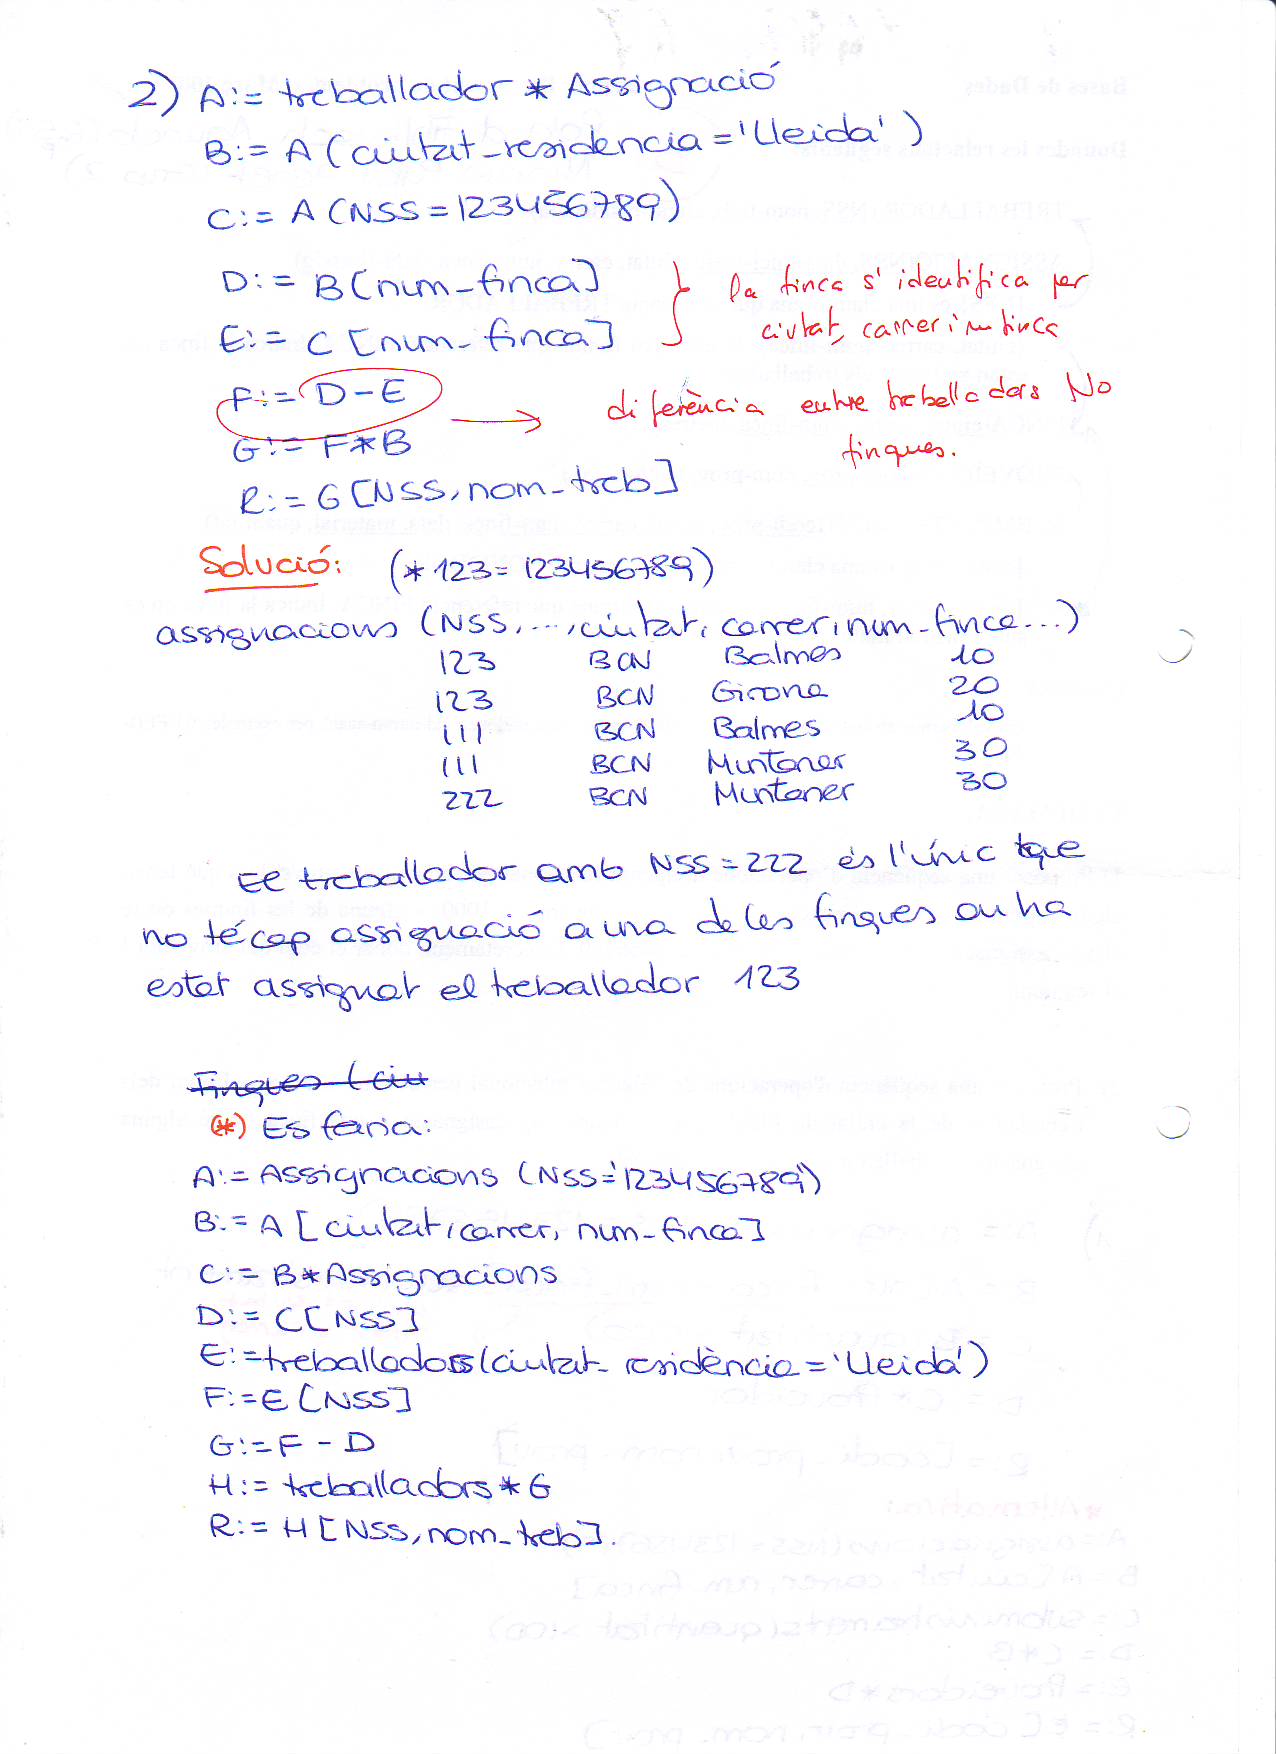 2) A:= treballador * Assignació
B:= A (ciutat_residencia = 'Lleida')
C:= A (NSS = 123456789)
D:= B [num_finca]
E:= C [num_finca]
la finca s'identifica per
ciutat, carrer i finca
F:= D - E
diferència entre treballadors NO
finques.
G:= F * B
R:= G [NSS, nom_treb]
Solució: (* 123 = 123456789)
assignacions (NSS, ..., ciutat, carrer, num_finca ...)
123 BCN Balmes 10
123 BCN Girona 20
111 BCN Balmes 10
111 BCN Muntaner 30
222 BCN Muntaner 30
El treballador amb NSS = 222 és l'únic que
no té cap assignació a una de les finques on ha
estat assignat el treballador 123
Finques (ciu
(*) Es faria:
A:= Assignacions (NSS='123456789')
B:= A [ciutat, carrer, num_finca]
C:= B * Assignacions
D:= C [NSS]
E:= treballadors (ciutat_residència = 'Lleida')
F:= E [NSS]
G:= F - D
H:= treballadors * G
R:= H [NSS, nom_treb].